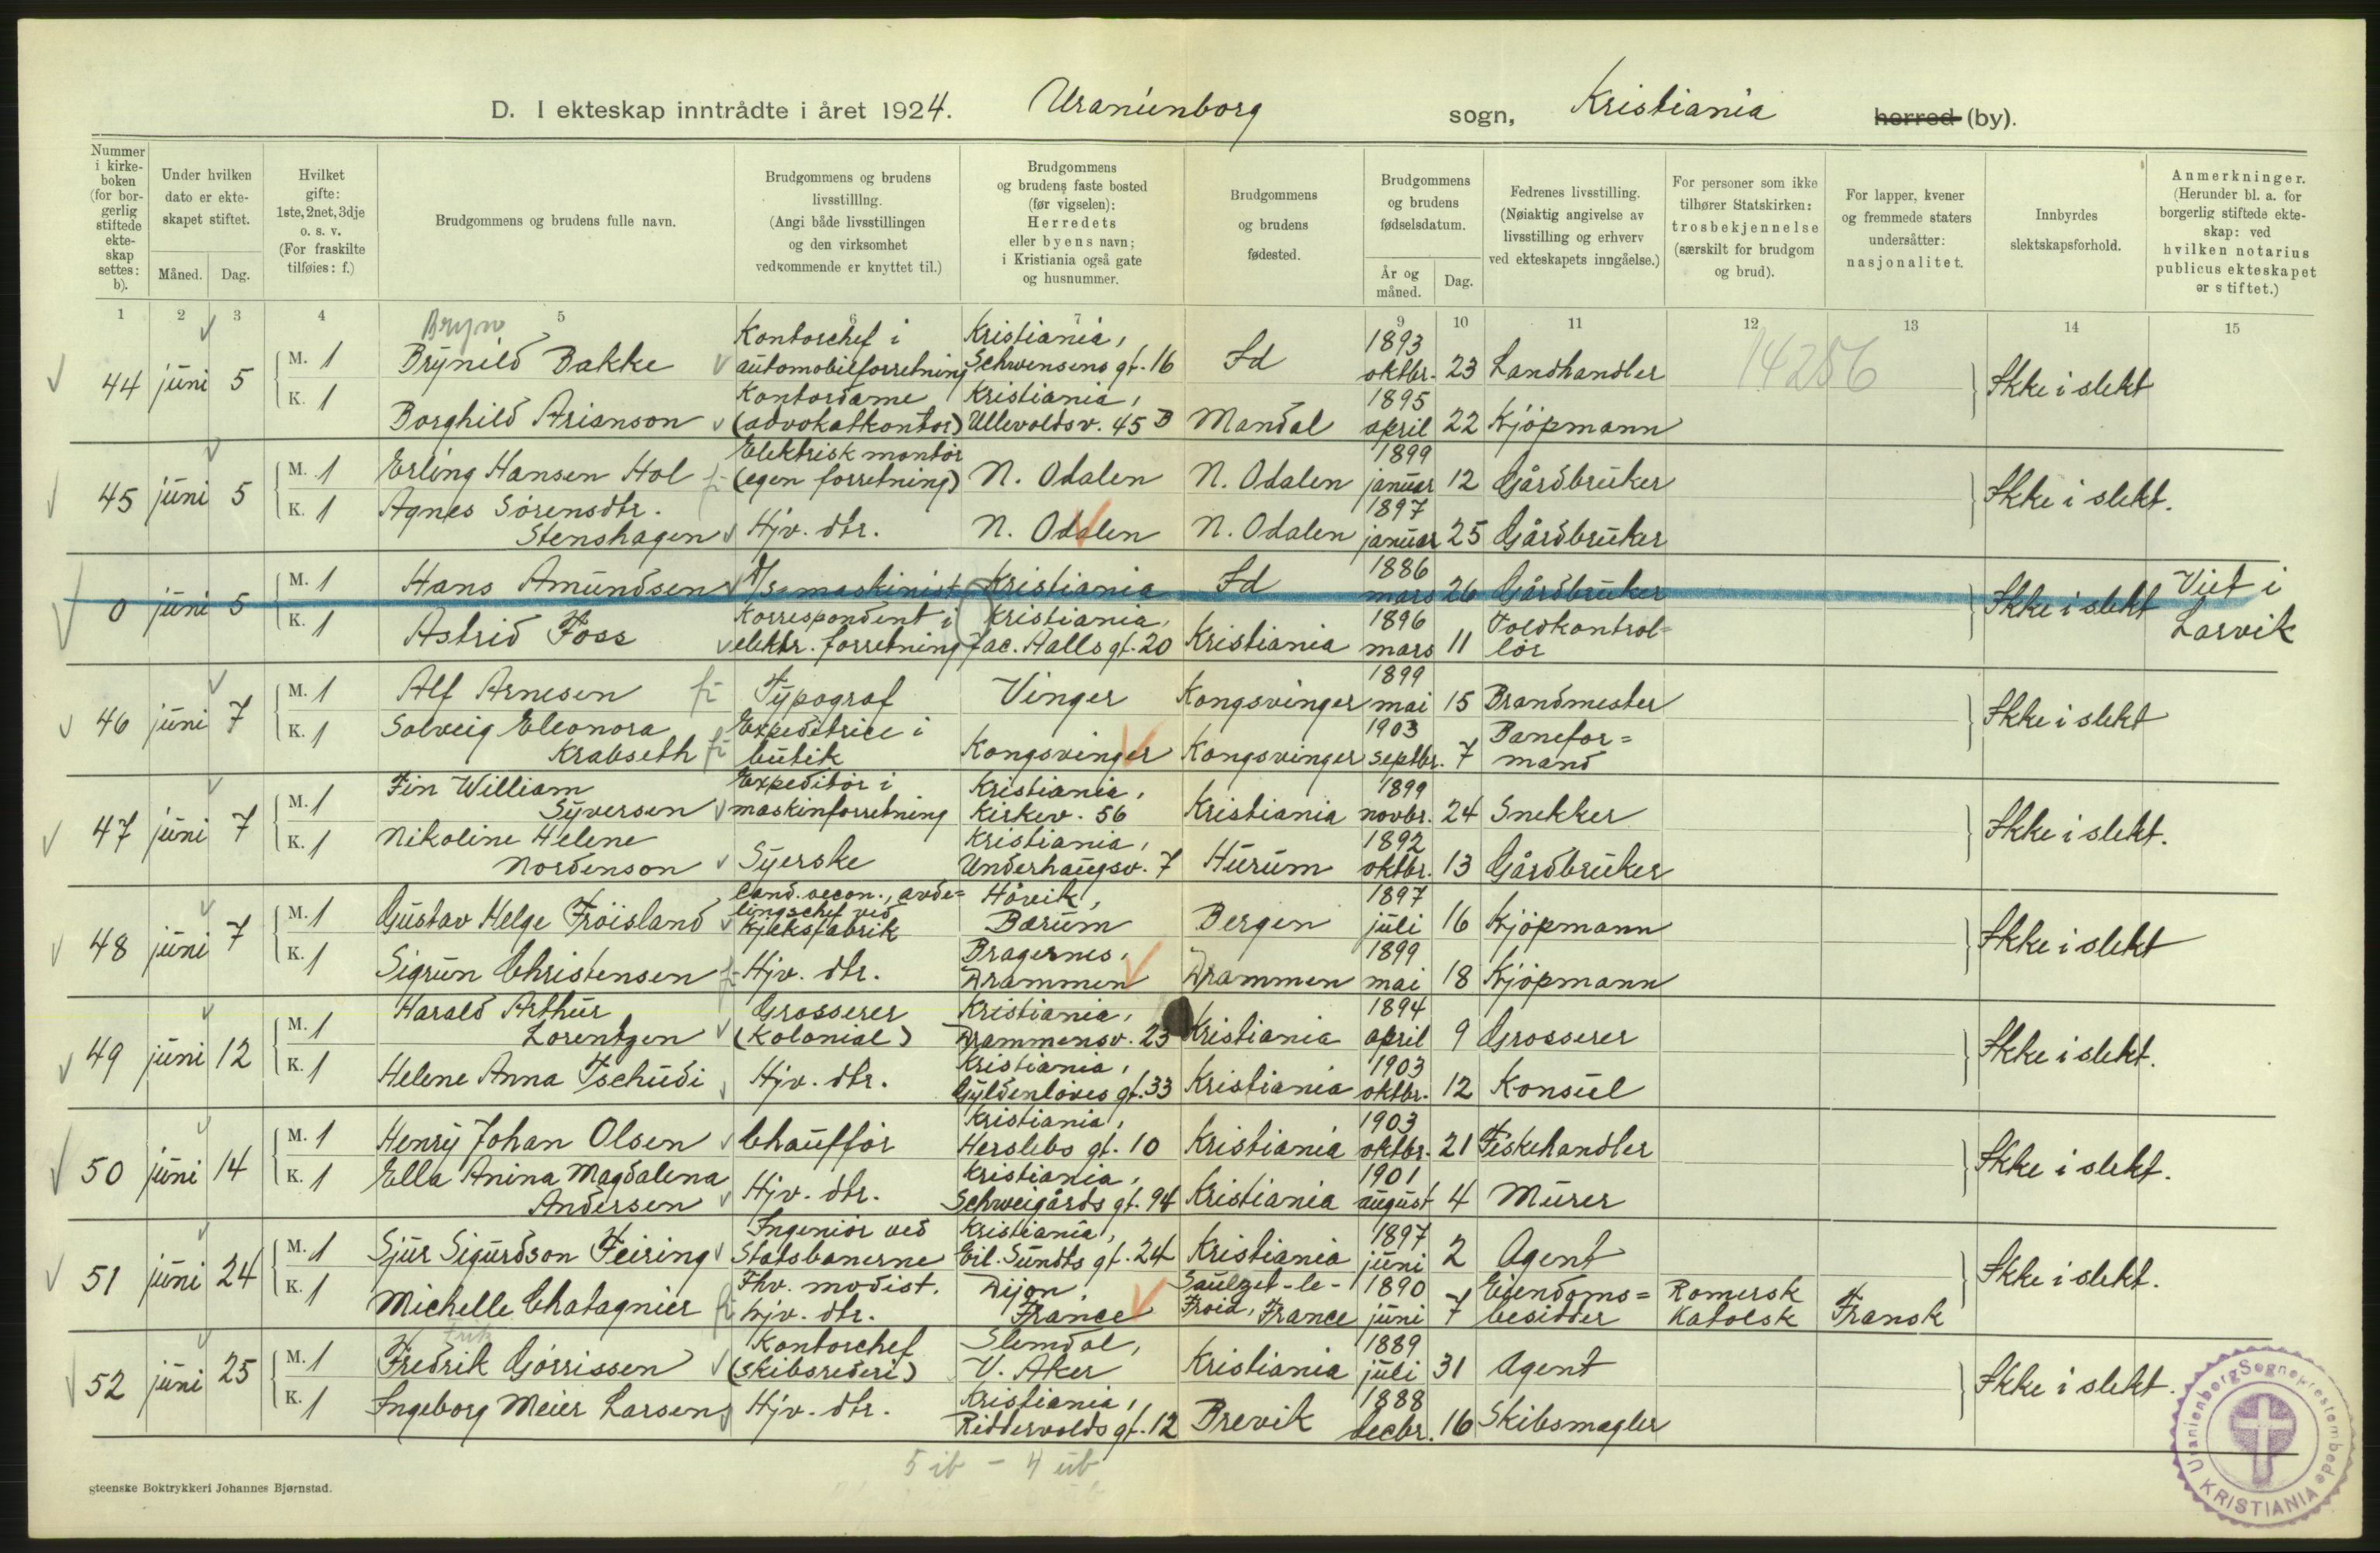 D. I ekteskap inntrådte i året 1924. Uranienborg sogn, Kristiania herred (by).
Nummer i kirke-boken (for bor-gerlig stiftede ekte-skap settes: b).
Under hvilken dato er ekte-skapet stiftet.
Måned. Dag.
Hvilket gifte: 1ste, 2net, 3dje o. s. v. (For fraskilte tilføies: f.)
Brudgommens og brudens fulle navn.
Brudgommens og brudens livsstillIng. (Angi både livsstillingen og den virksomhet vedkommende er knyttet til.)
Brudgommens og brudens faste bosted (før vigselen): Herredets eller byens navn; i Kristiania også gate og husnummer.
Brudgommens og brudens fødested.
Brudgommens og brudens fødselsdatum.
År og måned. Dag.
Fedrenes livsstilling. (Nøiaktig angivelse av livsstilling og erhverv ved ekteskapets inngåelse.)
For personer som ikke tilhører Statskirken: trosbekjennelse (særskilt for brudgom og brud).
For lapper, kvener og fremmede staters undersåtter: nasjonalitet.
Innbyrdes slektskapsforhold.
Anmerkninger. (Herunder bl. a. for borgerlig stiftede ekte-skap: ved hvilken notarius publicus ekteskapet er stiftet.)
1 2 3 4 5 6 7 9 10 11 12 13 14 15
Bryn
44 juni 5 M. 1 Brynild Bakke Kontorchef i automobilforretning Kristiania, Schwensens gt. 16 Id 1893 oktbr. 23 Landhandler 14256 Ikke i slekt
K. 1 Borghild Arianson Kontordame (advokatkontor) Kristiania, Ullevoldsv. 45 B Mandal 1895 april 22 Kjøpmann
45 juni 5 M. 1 Erling Hansen Hol Elektrisk montør (egen forretning) N. Odalen N. Odalen 1899 januar 12 Gårdbruker Ikke i slekt.
K. 1 Agnes Sørensdtr. Stenshagen Hjv. dtr. N. Odalen N. Odalen 1897 januar 25 Gårdbruker
0 juni 5 M. 1 Hans Amundsen D/S maskinist Kristiania Id 1886 mars 26 Gårdbruker Ikke i slekt Viet i Larvik
K. 1 Astrid Foss Korrespondent i elektr. forretning Kristiania, Jac. Aalls gt. 20 Kristiania 1896 mars 11 Toldkontrol=lør
46 juni 7 M. 1 Alf Arnesen Typograf Vinger Kongsvinger 1899 mai 15 Brandmester Ikke i slekt
K. 1 Solveig Eleonora Krabseth Expeditrice i butik Kongsvinger Kongsvinger 1903 septbr. 7 Banefor=mand
47 juni 7 M. 1 Fin William Syversen Expeditør i maskinforretning Kristiania, Kirkev. 56 Kristiania 1899 novbr. 24 Snekker Ikke i slekt.
K. 1 Nikoline Helene Nordenson Syerske Kristiania, Underhaugsv. 7 Hurum 1892 oktbr. 13 Gårdbruker
48 juni 7 M. 1 Gustav Helge Frøisland Cand. oecon., avde=lingschef ved kjeksfabrik Høvik, Bærum Bergen 1897 juli 16 Kjøpmann Ikke i slekt
K. 1 Sigrun Christensen Hjv. dtr. Bragernes, Drammen Drammen 1899 mai 18 Kjøpmann
49 juni 12 M. 1 Harald Arthur Lorentzen Grosserer (Kolonial) Kristiania, Drammensv. 23 Kristiania 1894 april 9 Grosserer Ikke i slekt.
K. 1 Helene Anna Tschudi Hjv. dtr. Kristiania, Gyldenløves gt. 33 Kristiania 1903 oktbr. 12 Konsul
50 juni 14 M. 1 Henry Johan Olsen Chauffør Kristiania, Herslebs gt. 10 Kristiania 1903 oktbr. 21 Fiskehandler Ikke i slekt.
K. 1 Ella Anina Magdalena Andersen Hjv. dtr. Kristiania, Schweigårds gt. 94 Kristiania 1901 august 4 Murer
51 juni 24 M. 1 Sjur Sigurdson Feiring Ingeniør ved Statsbanerne Kristiania, Eil. Sundts gt. 24 Kristiania 1897 juni 2 Agent Ikke i slekt.
K. 1 Michelle Chatagnier Fhv. modist. hjv. dtr. Dijon, France Saulzet-le-Froid, France 1890 juni 7 Eiendoms=besidder Romersk Katolsk Fransk
Fritz
52 juni 25 M. 1 Fredrik Gørrissen Kontorchef (skibsrederi) Slemdal, V. Aker Kristiania 1889 juli 31 Agent Ikke i slekt.
K. 1 Ingeborg Meier Larsen Hjv. dtr. Kristiania, Riddervolds gt. 12 Brevik 1888 decbr. 16 Skibsmægler
5 ib - 4 ub
steenske Boktrykkeri Johannes Bjørnstad.
Uranienborg Sogneprestembede KRISTIANIA